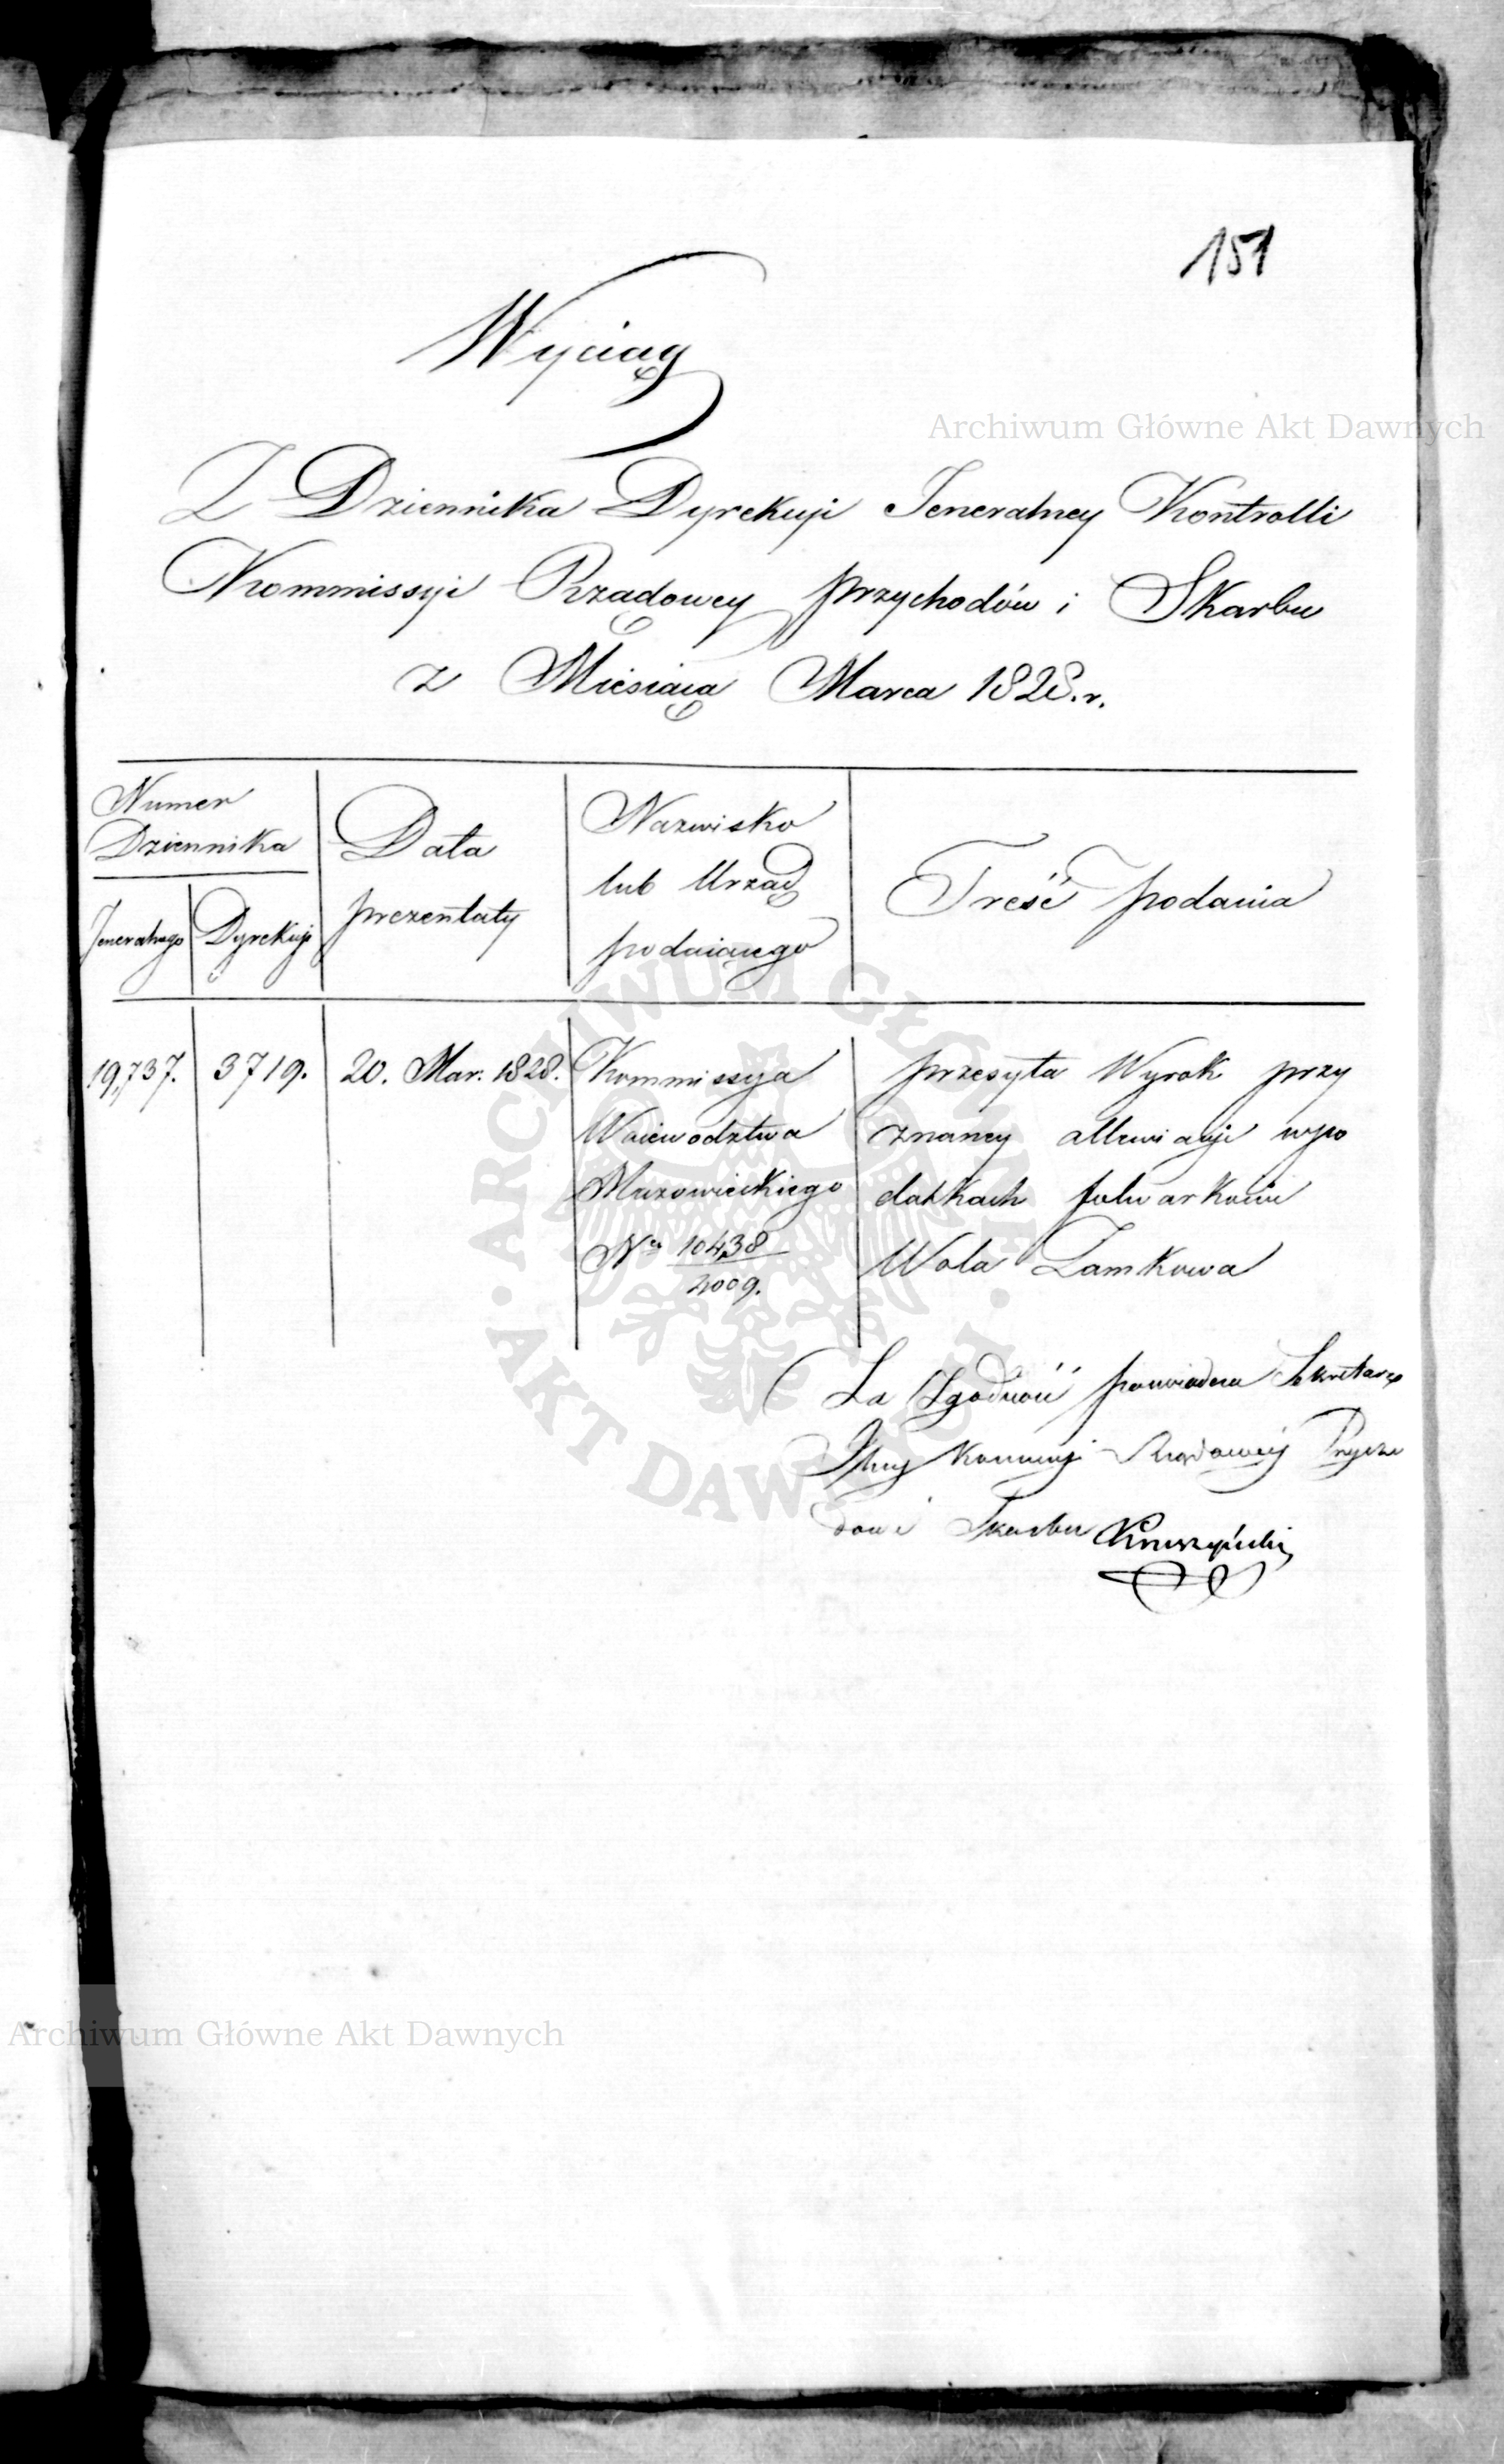 151
Wyciąg
Z Dziennika Dyrekcyi Jeneralney Kontrolli
Kommissyi Rządowey Przychodów i Skarbu
z Miesiąca Marca 1828.r.
Numer
Dziennika
Jeneralnego
Dyrekcyi
Data
prezentaty
Nazwisko
lub Urząd
podaiącego
Treść podania
19,737.
3719.
20. Mar. 1828.
Kommissya
Woiewodztwa
Mazowieckiego
Nr 10438
4009.
przesyła Wyrok przy
znaney allewiacyi w po
datkach folwarkowi
Wola Zamkowa
Za Zgodność poswiadcza Sekretarz
Jlny Kommissyi Rządowéy Przycho
dów i Skarbu
Archiwum Główne Akt Dawnych
Archiwum Główne Akt Dawnych
ARCHIWUM GŁÓWNE
AKT DAWNYCH